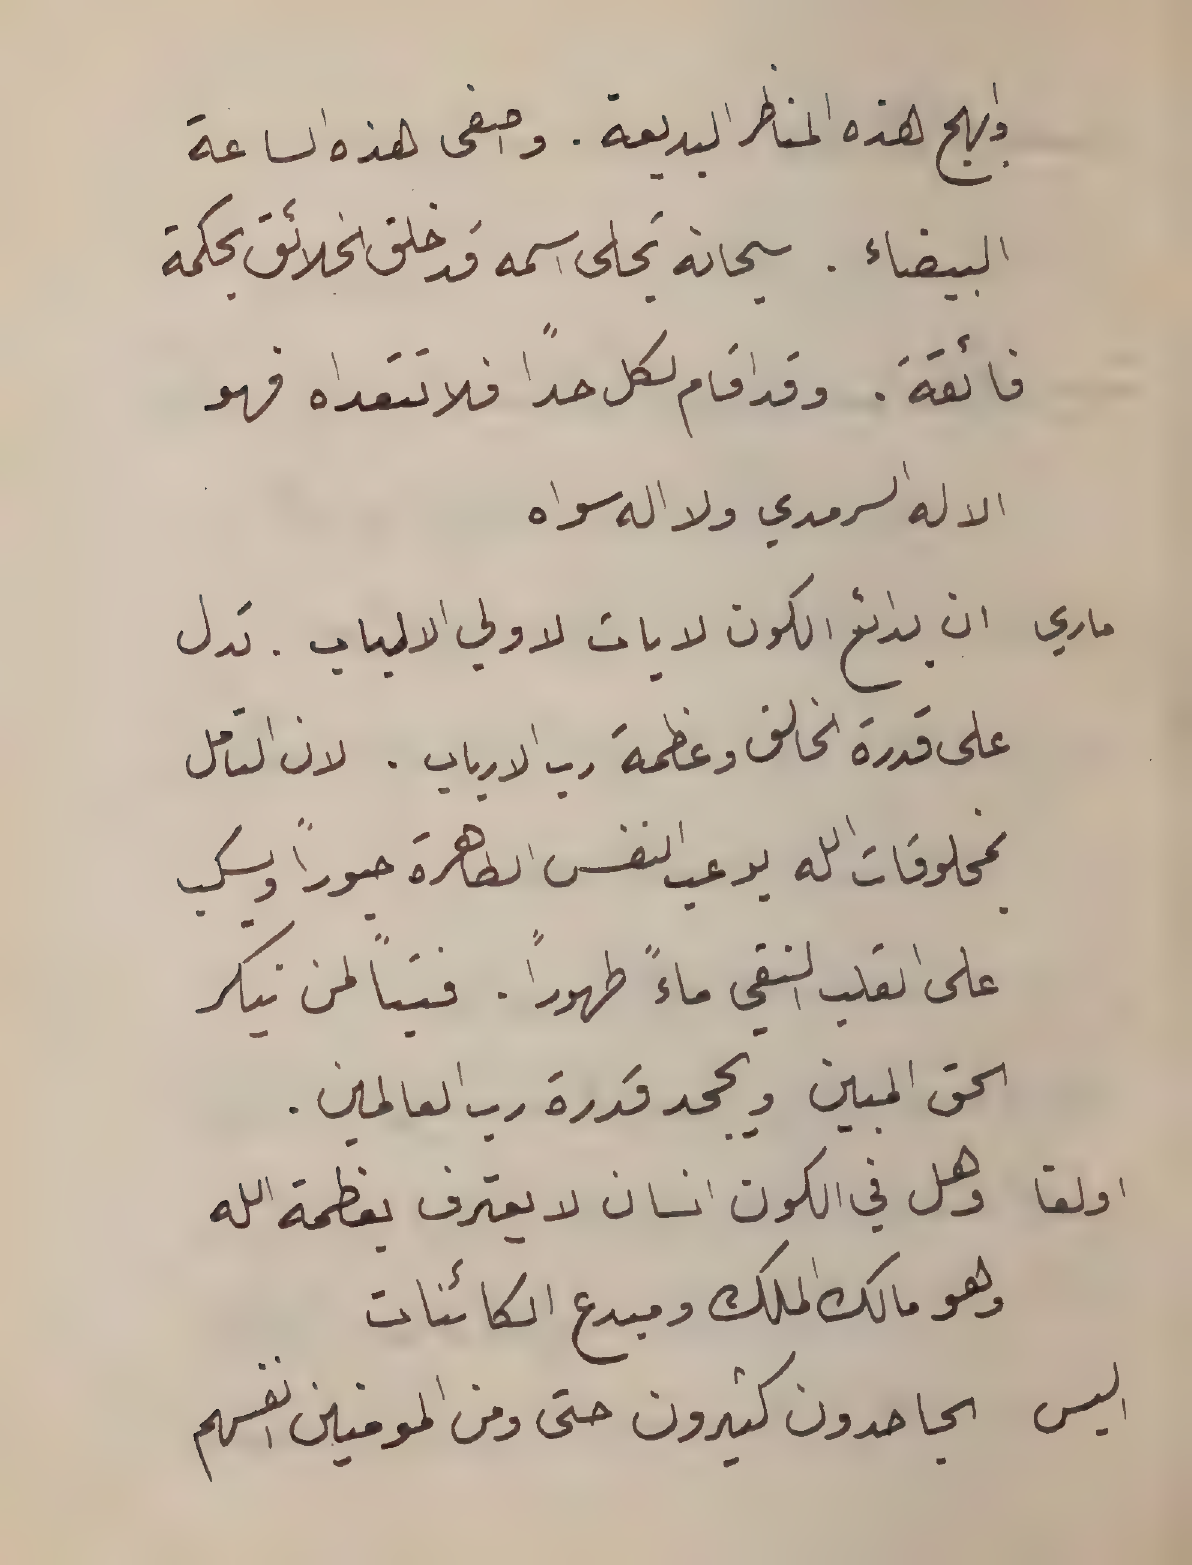 وابهج هذه المناظر البديعة . واصفى هذه الساعة
البيضاء . سبحانه تجلى اسمه قد خلق الخلائق بحكمة
فائقة . وقد اقام لكل حدًا فلا تتعداه فهو
الاله السرمدي ولا اله سواه
ماري ان بدائع الكون لايات لاولي الالباب . تدل
على قدرة الخالق وعظمة رب الارباب . لان التأمل
بمخلوقات الله يوعب النفس الطاهرة حبورًا ويسكب
على القلب النقي ماءً طهورًا . فتبًا لمن ينكر
الحق المبين ويجحد قدرة رب العالمين .
اولغا وهل في الكون انسان لا يعترف بعظمة الله
وهو مالك الملك ومبدع الكائنات
اليس الجاحدون كثيرون حتى ومن المومنين انفسهم